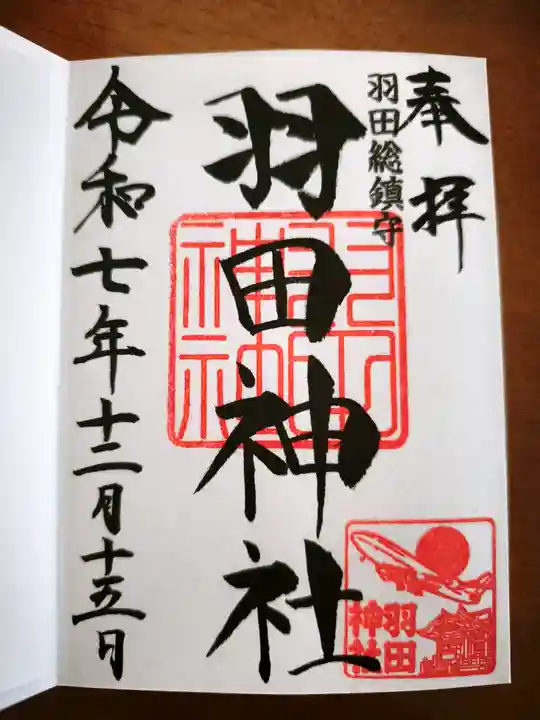 奉拝
羽田総鎮守
羽田神社
羽田神社
令和七年十二月十五日
羽田
神社